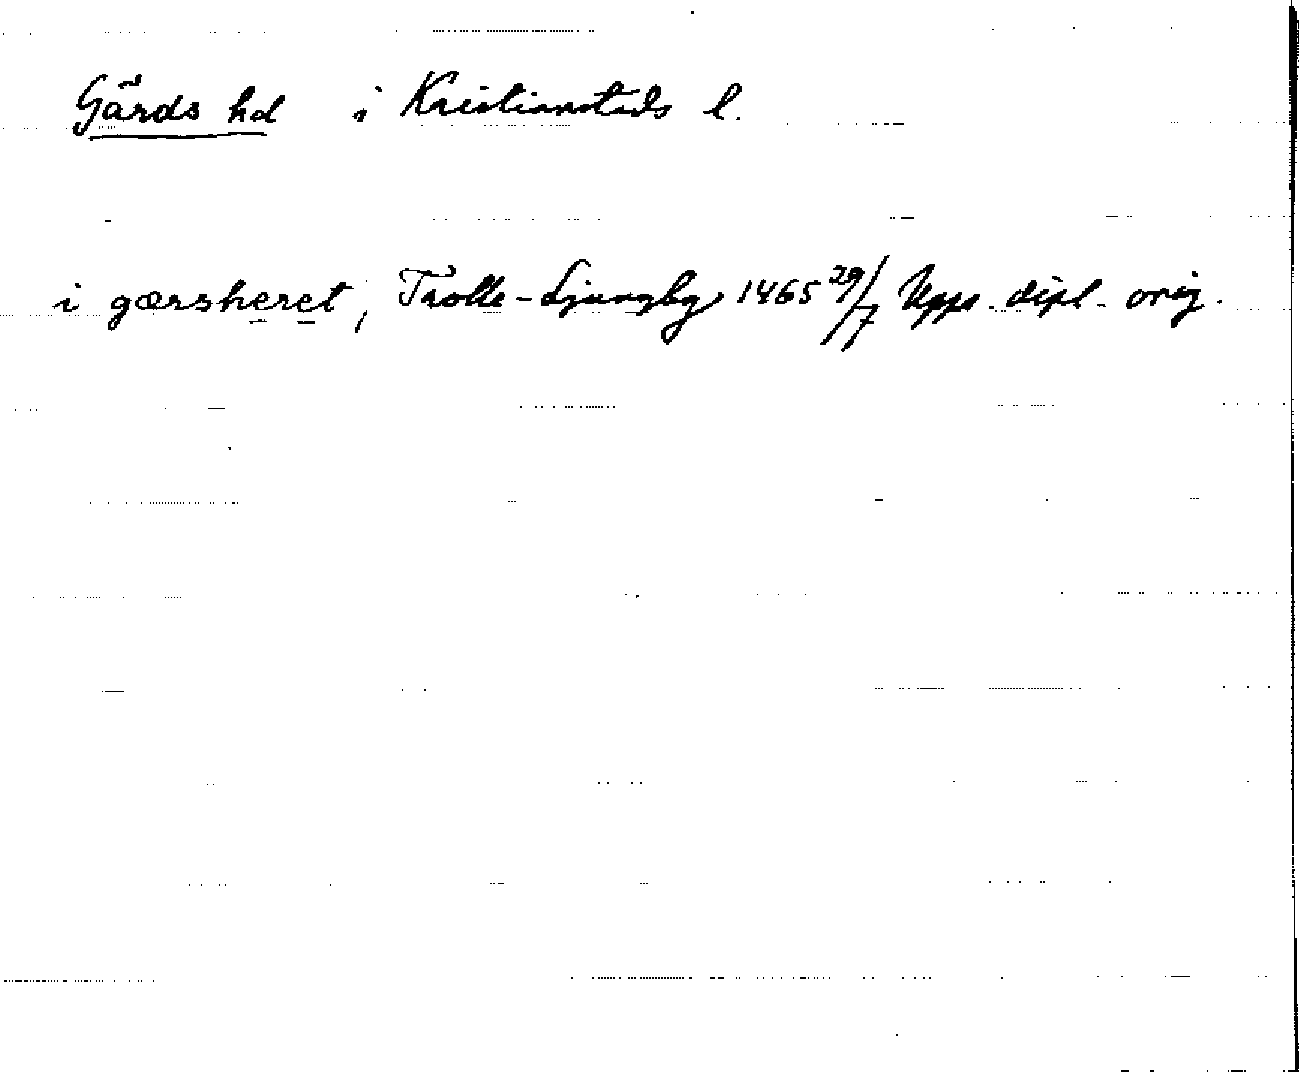 Gärds hd i Kristianstads l.
i gærsheret, Trolle-Ljungby 1465 29/7 Upps. dipl. orig.